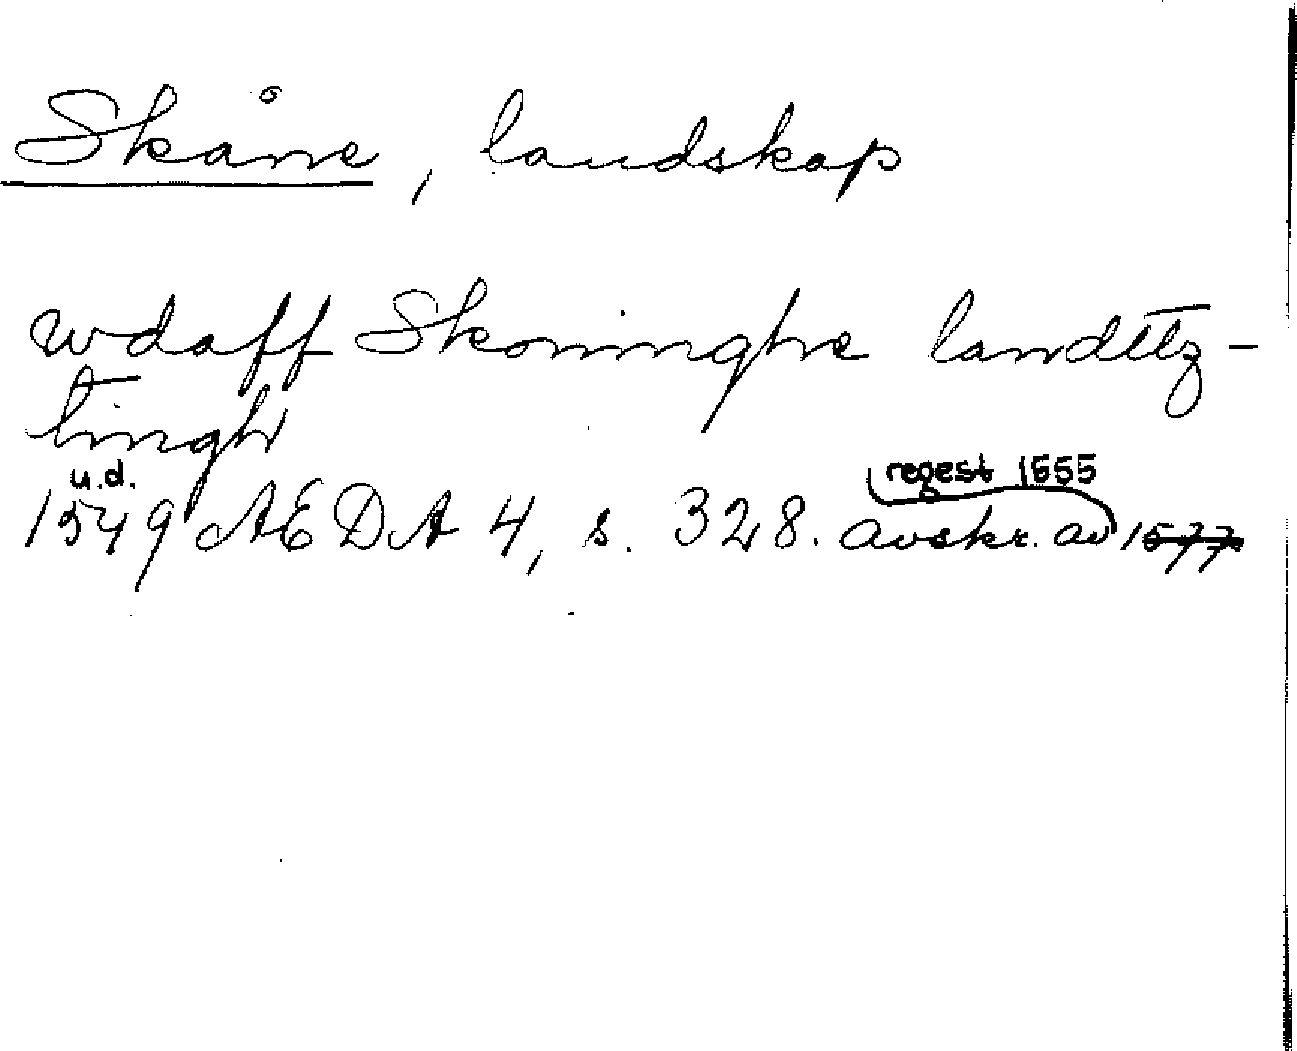 Skåne, landskap
wdaff Skoninghe landttz-
tingh
u.d. regest 1555
1549 AEDA 4, s. 328. avskr. av 1577